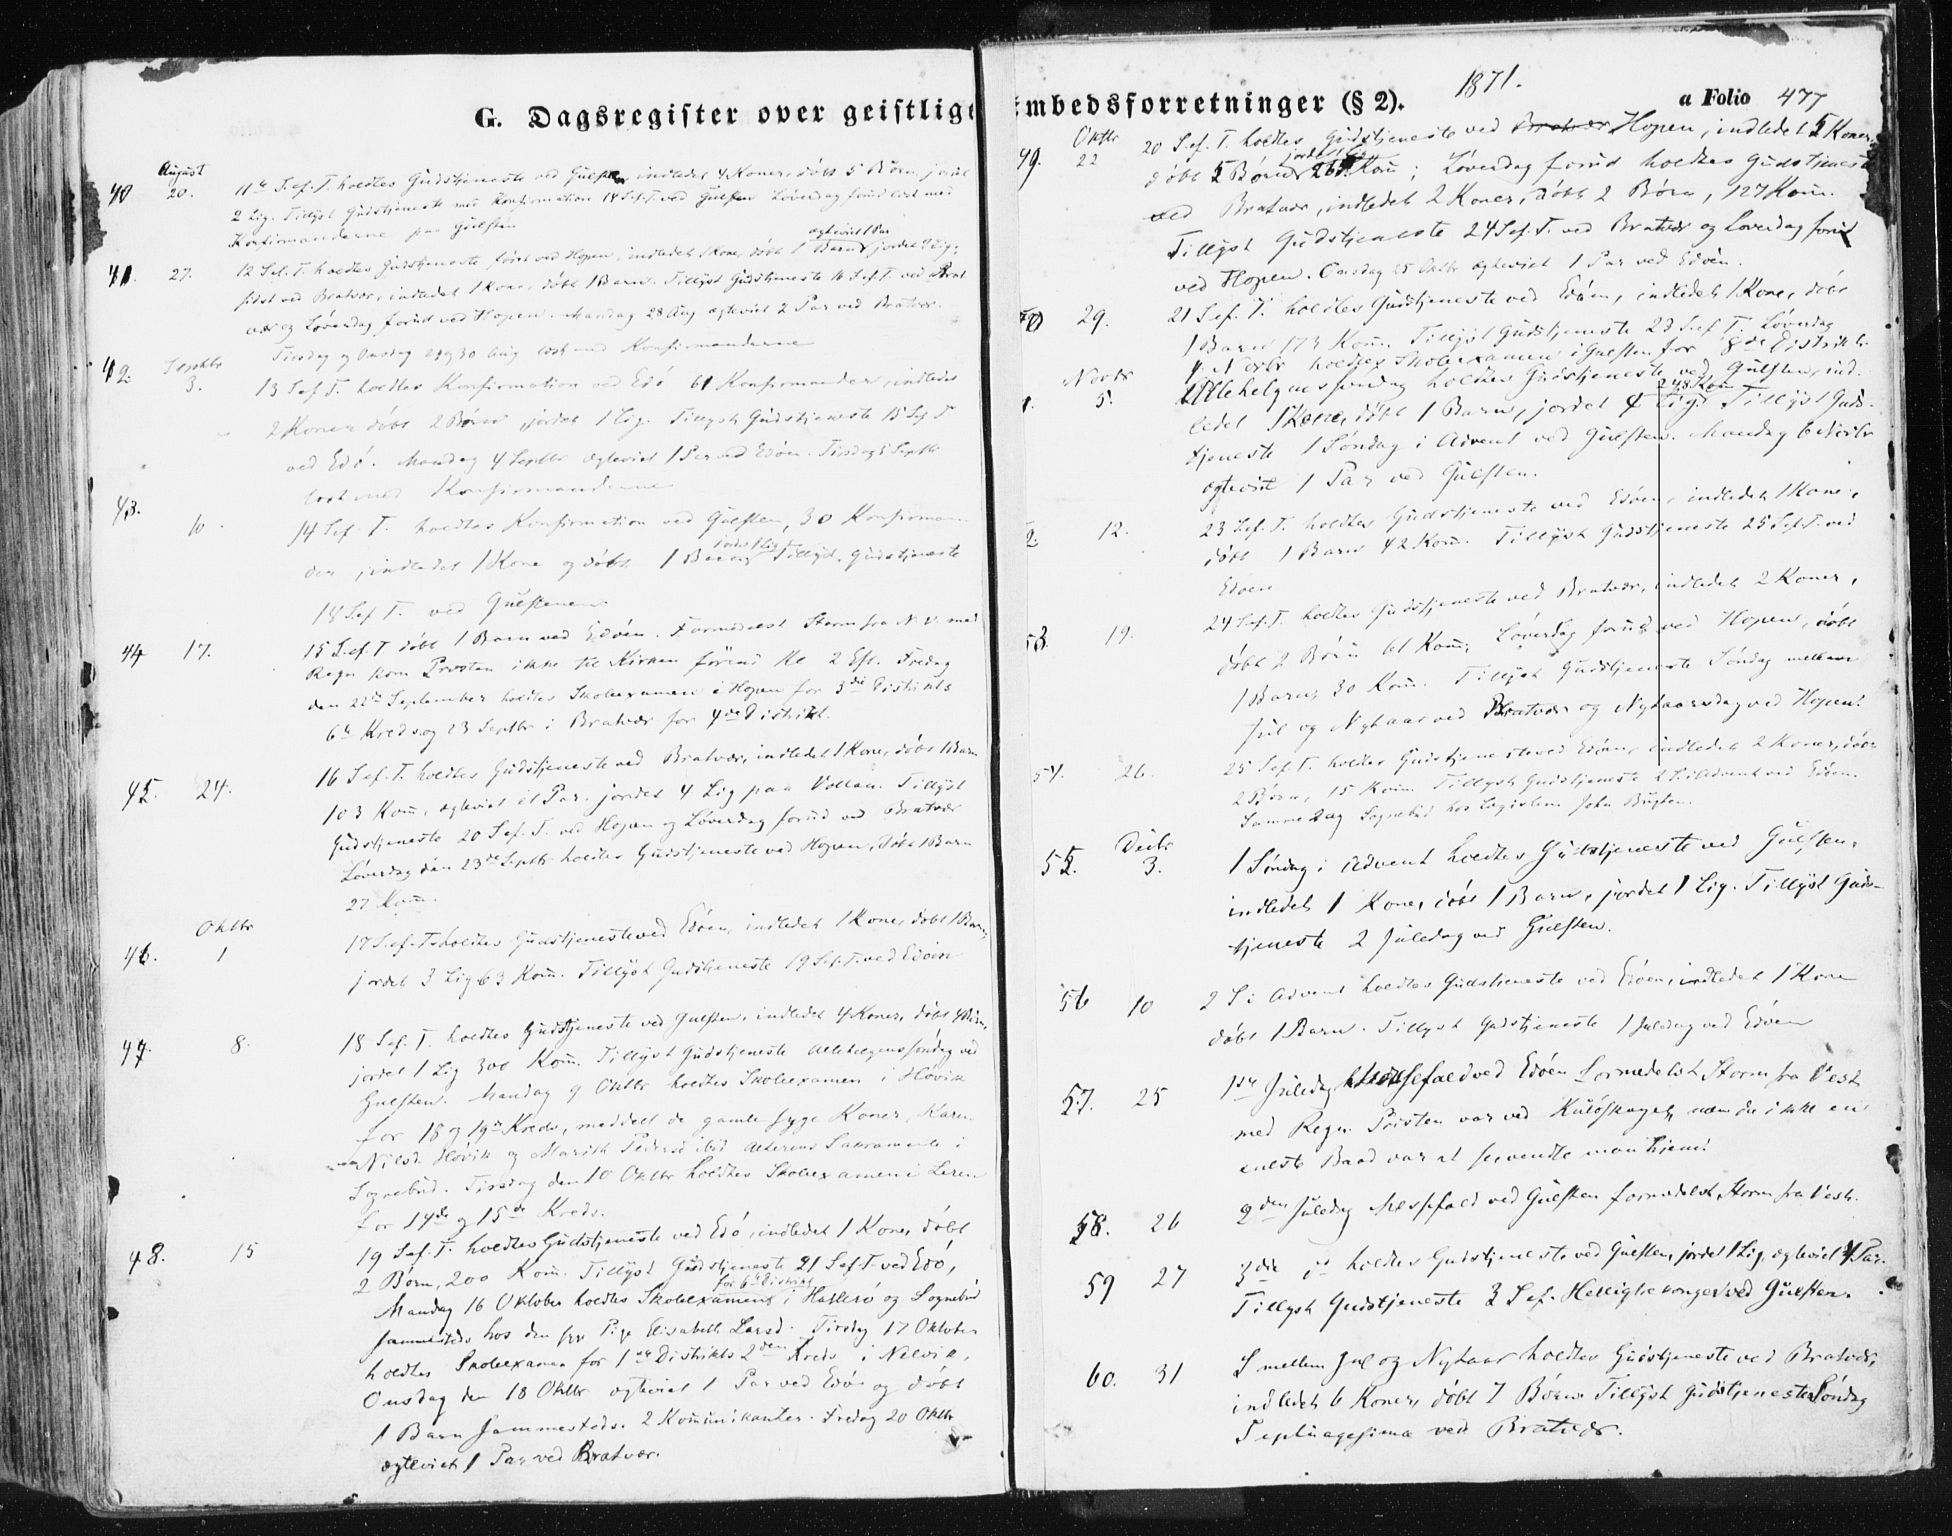 G. Dagsregister over geistlige Embedsforretninger (§ 2).
1871.
a Folio 477
August
40 20. 11te S.ef.T. holdtes Gudstjeneste ved Gulsten, indledet 4 Koner, døbt 5 Børn, jordet
2 Lig. Tillyst Gudstjeneste med Konfirmation 14 S.ef.T. ved Gulsten Løverdag forud læst med
Konfirmanderne paa Gulsten
41. 27. 12 S.ef.T. holdtes Gudstjeneste først ved Hopen, indledet 1 Kone, døbt 1 Barn, ægteviet 1 Par jordet 4 Lig;
sidst ved Bratvær, indledet 1 Kone, døbt 1 Barn. Tillyst Gudstjeneste 16 S.ef.T. ved Brat
vær og Løverdag forud ved Hopen. Mandag 28 Aug ægteviet 2 Par ved Bratvær.
Tirsdag og Onsdag 29 og 30 Aug læst med Konfirmanderne
42. Septbr 3. 13 S.ef.T. holdtes Konfirmation ved Edø 61 Konfirmander, indledet
2 Koner døbt 2 Børn, jordet 1 Lig. Tillyst Gudstjeneste 15 S.ef.T
ved Edø. Mandag 4 Septbr ægteviet 1 Par ved Edøen. Tirsdag 5 Septbr
læst med Konfirmanderne
43. 10. 14 S.ef.T. holdtes Konfirmation ved Gulsten, 30 Konfirman
der, indledet 1 Kone og døbt 1 Barn, jordet 1 Lig Tillyst Gudstjeneste
18 S.ef.T. ved Gulstenen
44 17. 15 S.ef.T døbt 1 Barn ved Edøen. Formedelst Storm fra N.V. med
Regn kom Provsten ikke til Kirken førend Kl 2 Eft. Fredag
den 22de September holdtes Skoleexamen i Hopen for 3die Distrikts
6te Kreds og 23 Septbr i Bratvær for 4de Distrikt.
45. 24. 16 S.ef.T. holdtes Gudstjeneste ved Bratvær, indledet 1 Kone, døbt 1 Barn
103 Kom, ægteviet et Par. jordet 4 Lig paa Vollan. Tillyst
Gudstjeneste 20 S.ef.T. ved Hopen og Løverdag forud ved Bratvær
Løverdag den 23de Septbr holdtes Gudstjeneste ved Hopen, døbt 1 Barn
27 Kom.
46. Oktbr 1 17 S.ef.T. holdtes Gudstjeneste ved Edøen, indledet 1 Kone, døbt 1 Barn,
jordet 3 Lig 63 Kom. Tillyst Gudstjeneste 19 S.ef.T. ved Edøen
47. 8. 18 S.ef.T. holdtes Gudstjeneste ved Gulsten, indledet 4 Koner, døbt 4 Børn,
jordet 1 Lig 300 Kom. Tillyst Gudstjeneste Allehelgenssøndag ved
Gulsten. Mandag 9 Oktbr holdtes Skoleexamen i Høvik
for 18 og 19de Kreds, meddelt de gamle syge Koner, Karen
Nilsd. Høvik og Marith Pedersd ibid Alterens Sakramente i
Sognebud. Tirsdag den 10 Oktbr holdtes Skoleexamen i Leren
for 14de og 15de Kreds.
48. 15 19 S.ef.T. holdtes Gudstjeneste ved Edø, indledet 1 Kone, døbt
2 Børn, 200 Kom. Tillyst Gudstjeneste 21 S.ef.T. ved Edø,
Mandag 16 Oktober holdtes Skoleexamen for 6te Distrikt i Hallerø og Sognebud
sammesteds hos den syge Pige Elisabeth Larsd. Tirsdag 17 Oktober
holdtes Skoleexamen for 1ste Distrikts 2den Kreds i Nelvik,
Onsdag den 18 Oktbr ægteviet 1 Par ved Edø og døbt
1 Barn sammesteds. 2 Kommunikanter. Fredag 20 Oktbr
ægteviet 1 Par ved Bratvær.
49. Oktbr 22 20 S.ef.T. holdtes Gudstjeneste ved Bratvær Hopen, indledet 5 Koner,
døbt 5 Børn, jordet 1 Lig 26 Kom; Løverdag forud holdtes Gudstjeneste
ved Bratvær, indledet 2 Koner, døbt 2 Børn, 127 Kom.
Tillyst Gudstjeneste 24 S.ef.T. ved Bratvær og Løverdag forud
ved Hopen. Onsdag 25 Oktbr ægteviet 1 Par ved Edøen.
50 29. 21 S.ef.T. holdtes Gudstjeneste ved Edøen, indledet 1 Kone, døbt
1 Barn 173 Kom. Tillyst Gudstjeneste 23 S.ef.T. Løverdag
4 Novbr holdtes Skoleexamen i Gulsten for 8de Distrikt.
Novbr 5. Allehelgenssøndag holdtes Gudstjeneste ved Gulsten, ind-
ledet 1 Kone, døbt 1 Barn, jordet 4 Lig. 248 Kom Tillyst Guds-
tjeneste 1 Søndag i Advent ved Gulsten. Mandag 6 Novbr
ægteviet 1 Par ved Gulsten.
2. 12. 23 S.ef.T. holdtes Gudstjeneste ved Edøen, indledet 1 Kone,
døbt 1 Barn 42 Kom. Tillyst Gudstjeneste 25 S.ef.T. ved
Edøen
53. 19. 24 S.ef.T. holdtes Gudstjeneste ved Bratvær, indledet 2 Koner,
døbt 2 Børn 61 Kom; Løverdag forud ved Hopen, døbt
1 Barn, 30 Kom. Tillyst Gudstjeneste Søndag mellem
Jul og Nytaar ved Bratvær og Nytaarsdag ved Hopen.
54. 26. 25 S.ef.T. holdtes Gudstjeneste ved Edøen, indledet 2 Koner, døbt
2 Børn, 15 Kom. Tillyst Gudstjeneste 2 S. i Advent ved Edøen.
Samme Dag Sognebud hos Logislem John
55. Decbr 3. 1 Søndag i Advent holdtes Gudstjeneste ved Gulsten,
indledet 1 Kone, døbt 1 Barn, jordet 1 Lig. Tillyst Guds-
tjeneste 2 Juledag ved Gulsten.
56 10 2 S i Advent holdtes Gudstjeneste ved Edøen, indledet 1 Kone
døbt 1 Barn. Tillyst Gudstjeneste 1 Juledag ved Edøen
57. 25 1ste Juledag Messefald ved Edøen formedelst Storm fra Vest
med Regn. Prosten var ved Kuløskaget, men da ikke en
eneste Baad var at se, vendte man hjem.
58. 26 2den Juledag Messefald ved Gulsten formedelst Storm fra Vest.
59 27 3die do holdtes Gudstjeneste ved Gulsten, jordet 1 Lig, ægteviet 4 Par.
Tillyst Gudstjeneste 3 S.ef. Helligtrekonger ved Gulsten.
60. 31 S mellem Jul og Nytaar holdtes Gudstjeneste ved Bratvær,
indledet 6 Koner, døbt 7 Børn Tillyst Gudstjeneste Søndag
Septuagesima ved Bratvær.